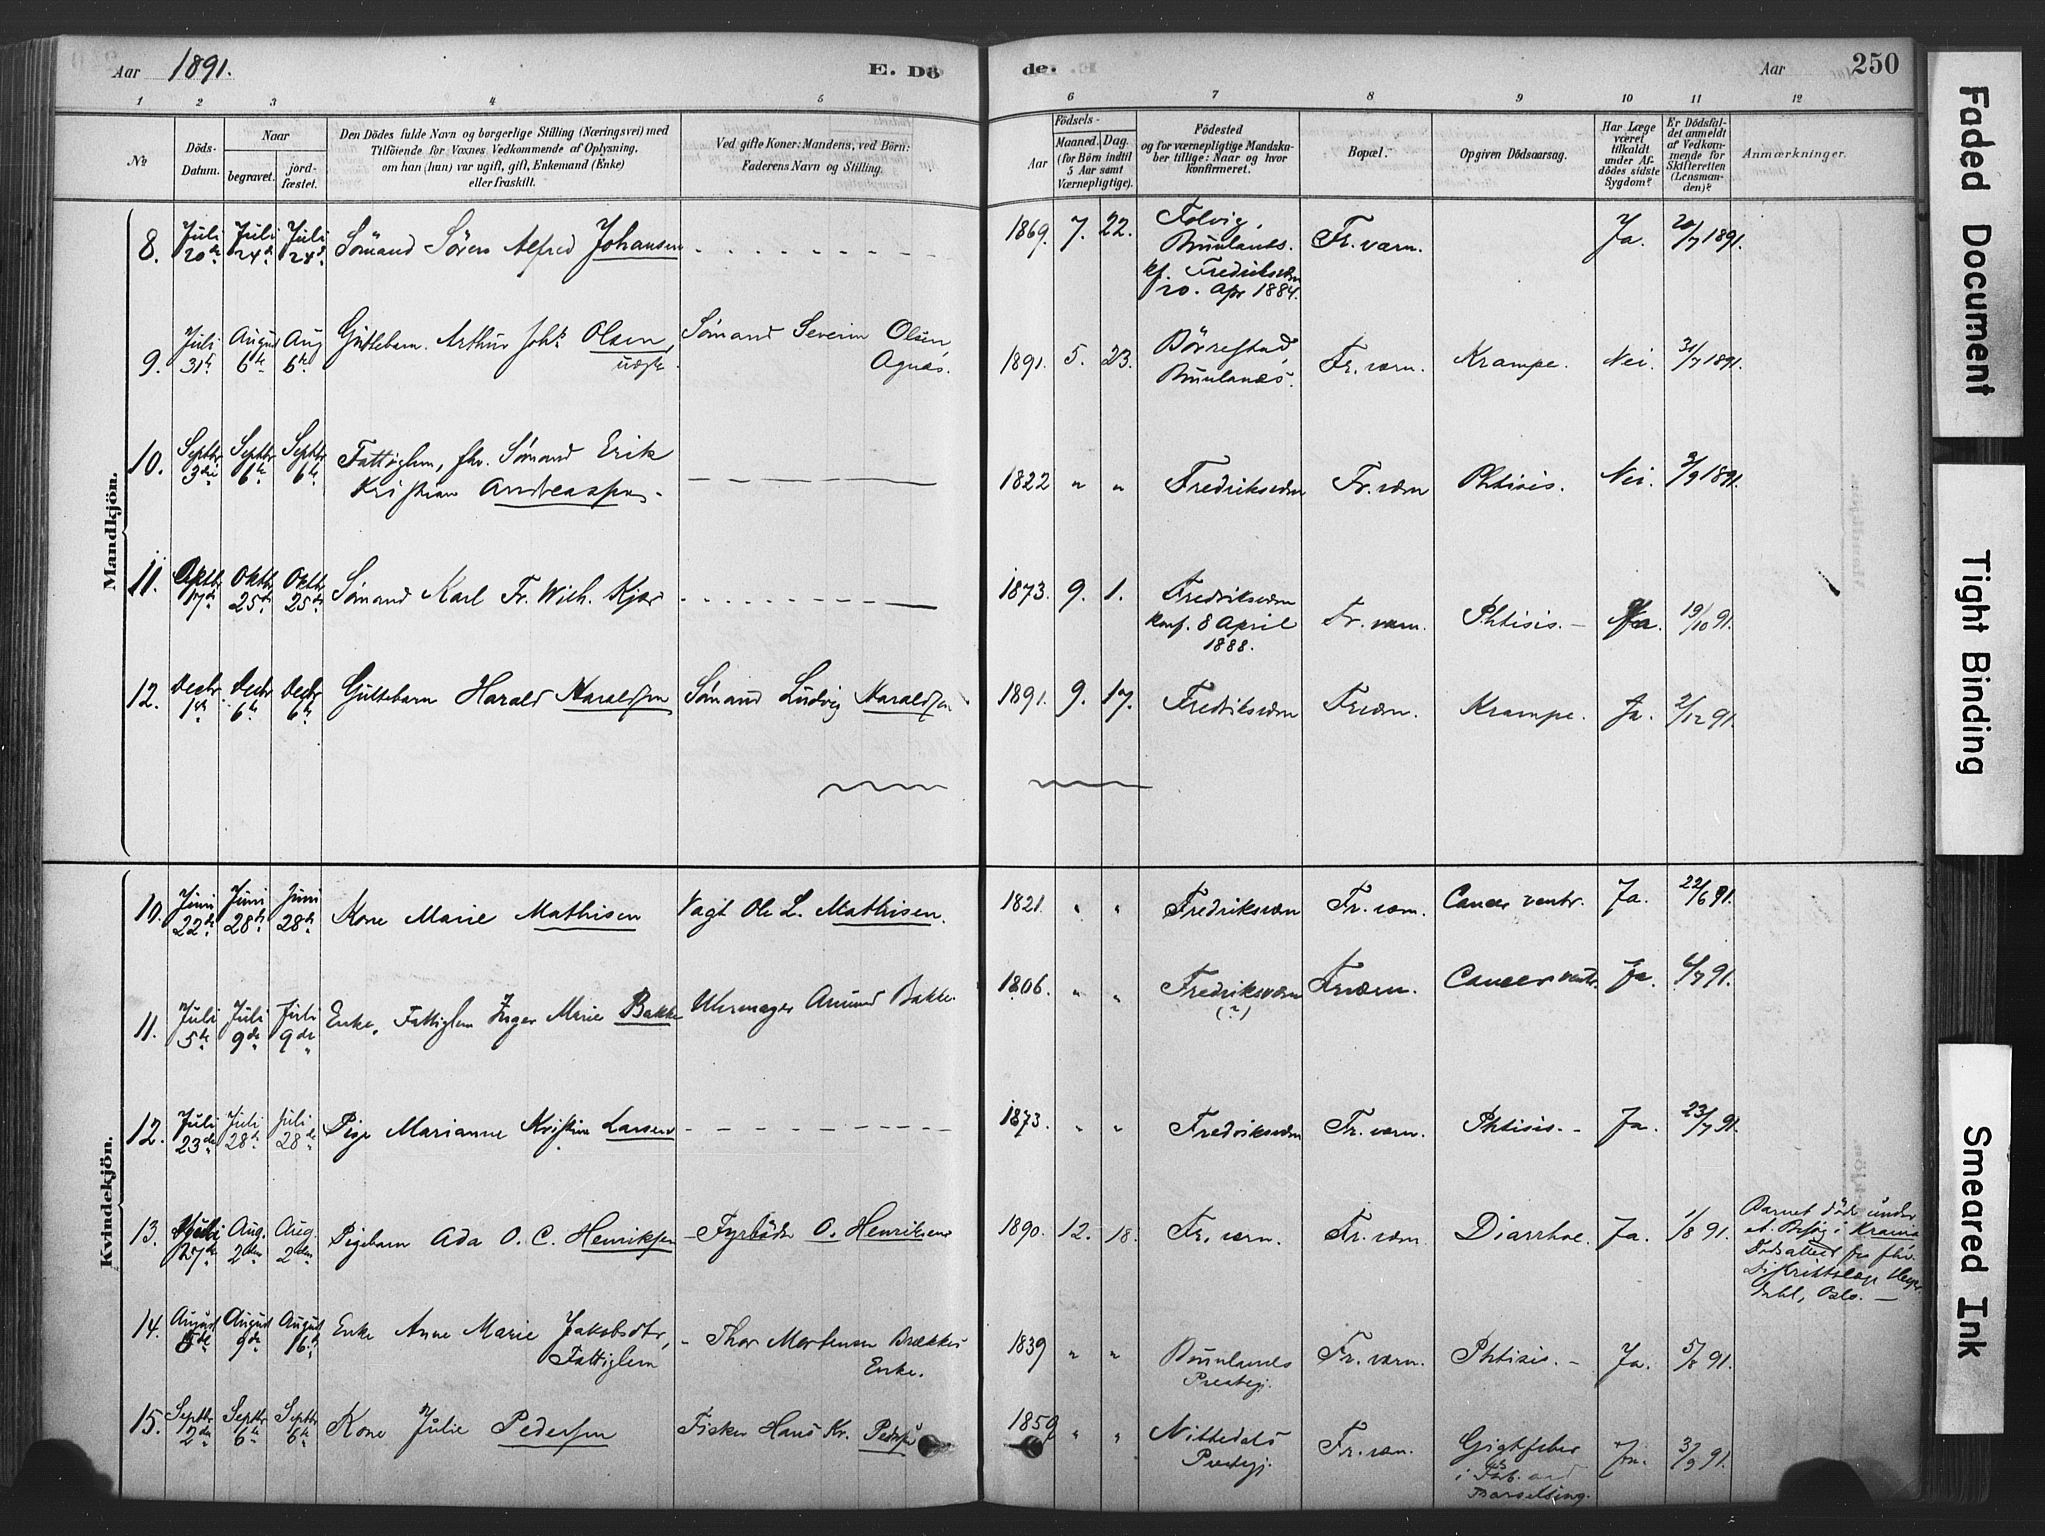 Aar 1891.
E. Dö
de.
Aar
250
1 2 3 4 5
6 7 8 9 10 11 12
№
Döds-
Datum.
Naar
begravet.
jord-
fæstet.
Den Dödes fulde Navn og borgerlige Stilling (Næringsvei) med
Tilföiende for Voxnes Vedkommende af Oplysning,
om han (hun) var ugift, gift, Enkemand (Enke)
eller fraskilt.
Ved gifte Koner: Mandens, ved Börn:
Faderens Navn og Stilling.
Födsels-
Aar
Maaned.
Dag.
(for Börn indtil
5 Aar samt
Værnepligtige).
Födested
og for værnepligtige Mandska-
ber tillige: Naar og hvor
konfirmeret.
Bopæl.
Opgiven Dödsaarsag.
Har Læge
været
tilkaldt
under Af-
dödes sidste
Sygdom?
Er Dödsfal-
det anmeldt
af Vedkom-
mende for
Skifteretten
(Lensman-
den)?
Anmærkninger.
Mandkjön.
8. Juli 20de Juli 24de Juli 24de Sömand Sören Alfred Johansen
1869. 7. 22. Fr.værn. Ja. 20/7 1891.
Brunlanes.
kf. Fredriksværn
20. Apr 1884.
9. Juli 31te August 6te Aug 6te Guttebarn. Arthur Joh. Olsen, Sömand Severin Olsen,
uægte. Agnes.
1891. 5. 23. Börrestad, Brunlanes. Fr. værn. Krampe. Nei. 31/7 1891.
10. Septbr 3die Septbr 6te Septbr 6te Fattiglem, fhv. Sömand Erik
Kristian Andreassen
1822 " " Fredriksværn Fr. værn Phtisis. Nei. 3/9 1891.
11. Oktbr 17de Oktbr 25de Oktbr 25de Sömand Karl Fr. Wilh. Kjær
1873. 9. 1. Fredriksværn Fr. værn. Phtisis. Ja. 19/10 91.
konf. 8 April
1888.
12. Decbr 1ste Decbr 6te Decbr 6te Guttebarn Harald Haraldsen Sömand Ludvig Haraldsen
1891. 9. 17. Fredriksværn Frværn. Krampe. Ja. 2/12 91.
Kvindekjön.
10. Juni 22de Juni 28de Juni 28de Kone Marie Mathisen Vagt Ole L. Mathisen.
1821. " " Fredriksværn Fr. værn. Cancer ventr. Ja. 22/6 91.
11. Juli 5te Juli 9de Juli 9de Enke, Fattiglem Inger Marie Bakke Uhrmager Amund Bakke
1806. " " Fredriksværn (?) Frværn. Cancer ventr. Ja. 6/7 91.
12. Juli 23de Juli 28de Juli 28de Pige Marianne Kristine Larsen
1873. " " Fredriksværn Fr. værn. Phtisis. Ja. 23/7 91.
13. Juli 27de Aug. 2den Aug. 2den Pigebarn Ada O. C. Henriksen Fyrböder O. Henriksen
1890. 12. 18. Fr. værn. Fr. værn Diarrhoe. Ja. 1/8 91.
Barnet döde under
et Besög i Krania
Dödsattest fra fhv.
Distriktslæge
Oslo.
14. August 5te August 9de August 16de Enke Anne Marie Jakobsdtr, Thor Mortensen Brækkes
Fattiglem Enke.
1839 " " Brunlanes Fr. værn. Phtisis. Ja. 5/8 91.
Prestegj.
15. Septbr 2den Septbr 6te Septbr 6te Kone Julie Pedersen Fisker Hans Kr. Pedersen
1859 " " Nittedals Prestegj. Fr. værn. Gigtfeber Ja. 3/9 91.
i Forb. med
Barselseng.
Faded Document
Tight Binding
Smeared Ink